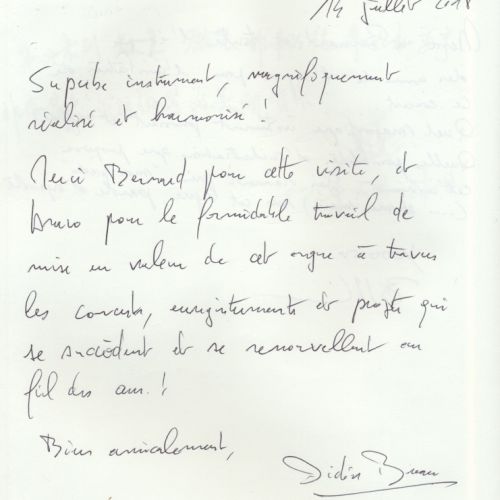 14 juillet 2018
Superbe instrument, magnifiquement
réalisé et harmonisé !
Merci Bernard pour cette visite, et
bravo pour le formidable travail de
mise en valeur de cet orgue à travers
les concerts, enregistrements et projets qui
se succèdent et se renouvellent au
fil des ans !
Bien amicalement,
Didier